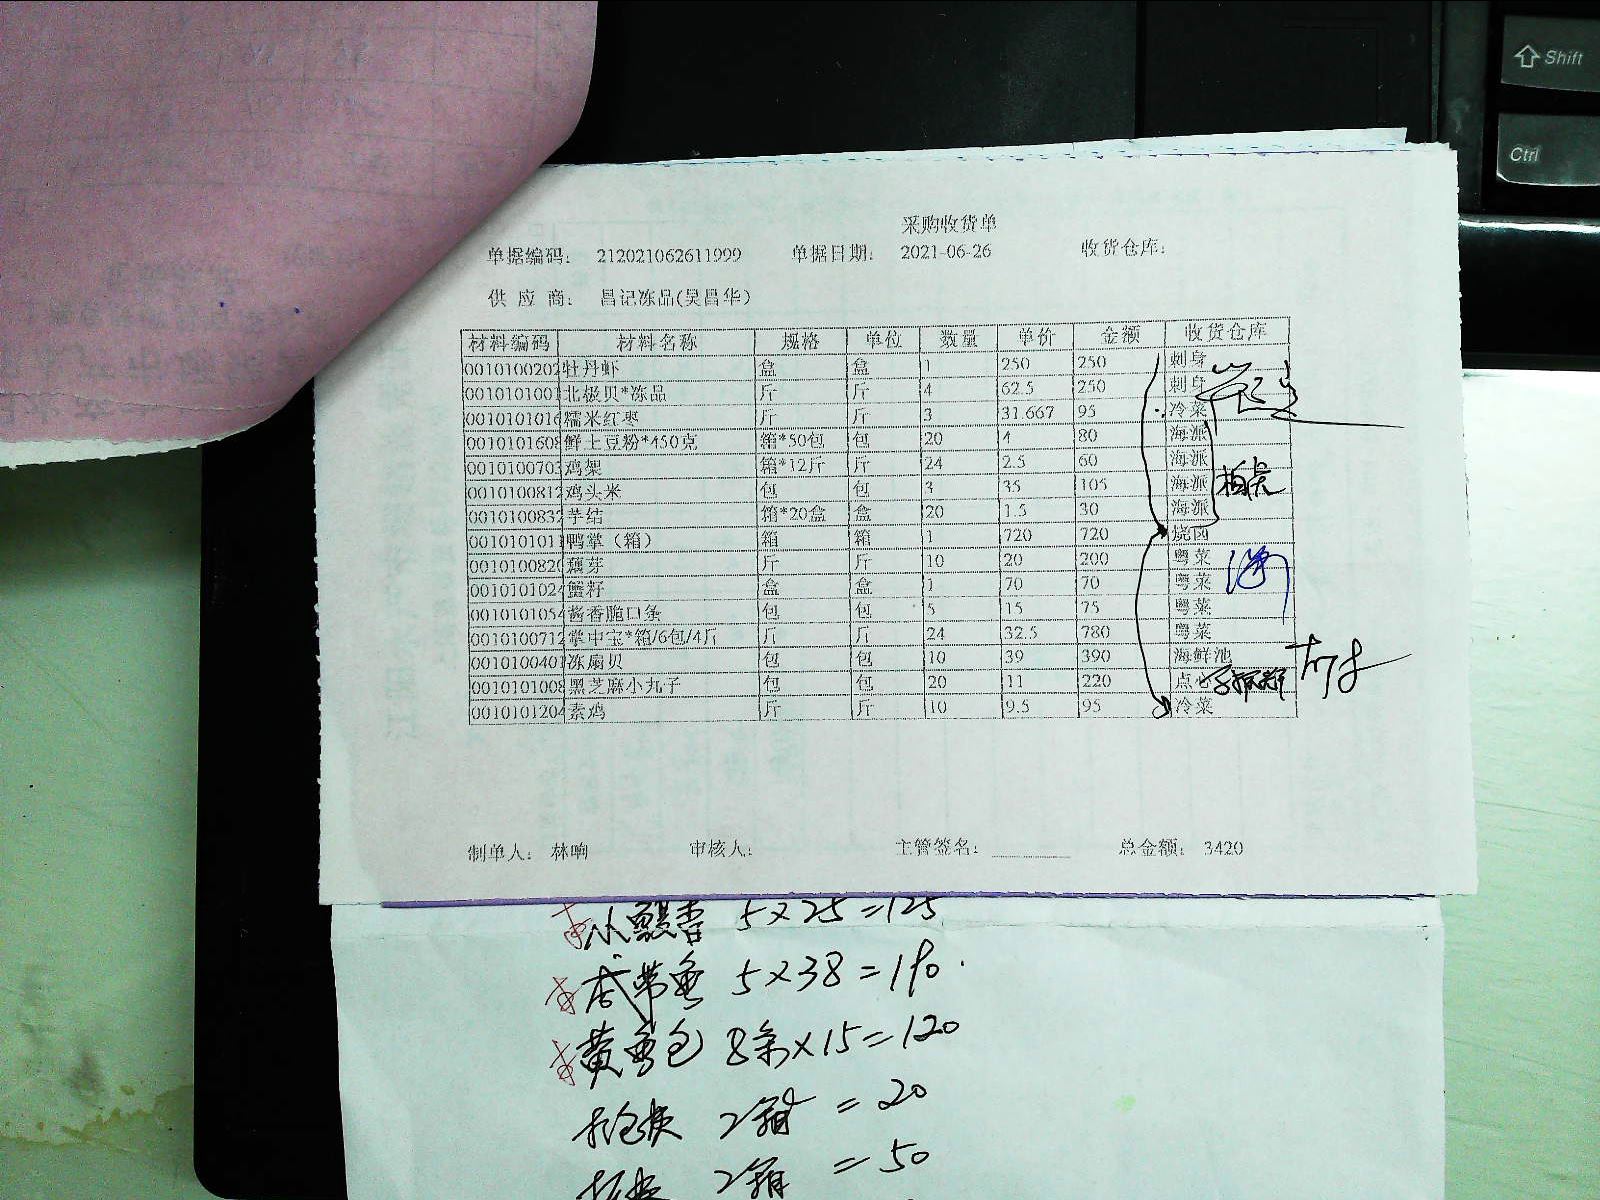 Shift
Ctrl
采购收货单
单据编码： 212021062611999 单据日期： 2021-06-26 收货仓库：
供 应 商： 昌记冻品(吴昌华)
材料编码 材料名称 规格 单位 数量 单价 金额 收货仓库
0010100202 牡丹虾 盒 盒 1 250 250 刺身
0010101001 北极贝*冻品 斤 斤 4 62.5 250 刺身
0010101016 糯米红枣 斤 斤 3 31.667 95 冷菜
0010101608 鲜土豆粉*450克 箱*50包 包 20 4 80 海派
0010100703 鸡架 箱*12斤 斤 24 2.5 60 海派
0010100812 鸡头米 包 包 3 35 105 海派
0010100832 芋结 箱*20盒 盒 20 1.5 30 海派
0010101011 鸭掌（箱） 箱 箱 1 720 720 烧卤
0010100820 藕芽 斤 斤 10 20 200 粤菜
0010101024 蟹籽 盒 盒 1 70 70 粤菜
0010101054 酱香脆口条 包 包 5 15 75 粤菜
0010100712 掌中宝*箱/6包/4斤 斤 斤 24 32.5 780 粤菜
0010100401 冻扇贝 包 包 10 39 390 海鲜池
0010101008 黑芝麻小丸子 包 包 20 11 220 点心
0010101204 素鸡 斤 斤 10 9.5 95 冷菜
制单人： 林响 审核人： 主管签名： 总金额： 3420
5×25=125
带鱼 5×38=190
黄鱼 8条×15=120
2箱 = 20
2箱 = 50